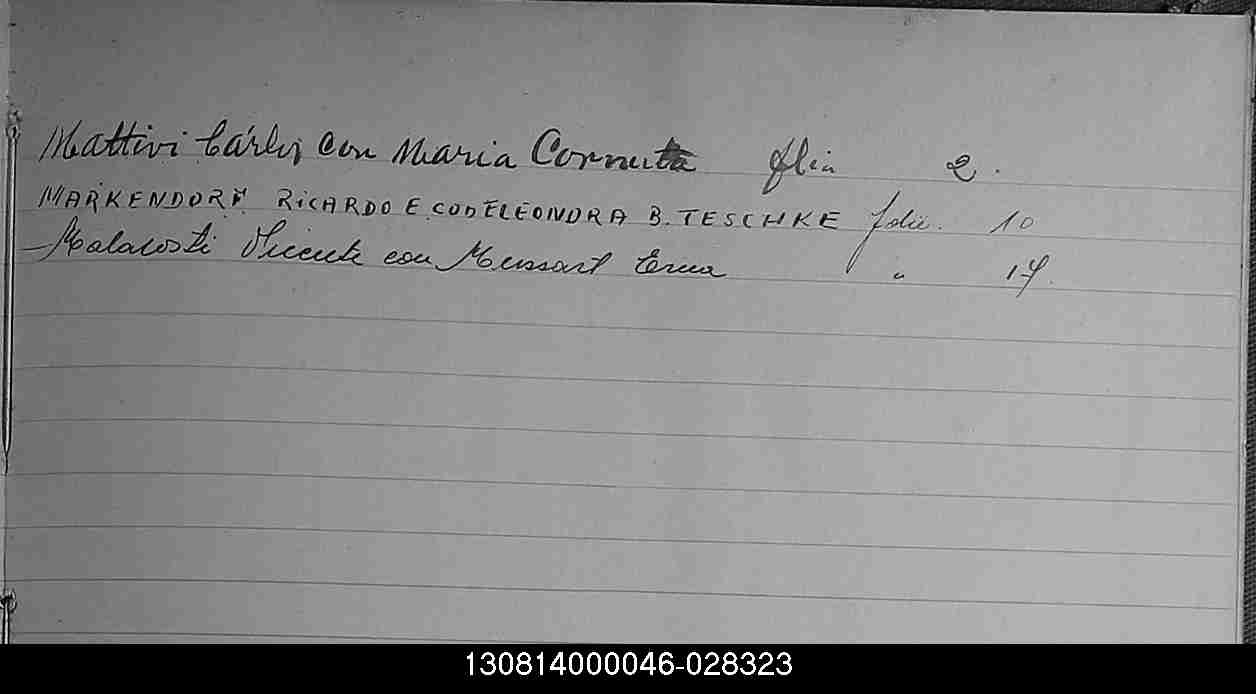 Mattivi Carlos con Maria Cornuta folia 2.
MARKENDORF RICARDO E. CON ELEONORA B. TESCHKE folio. 10
Malacosti Vicente con Mussart Erna " 17.
130814000046-028323